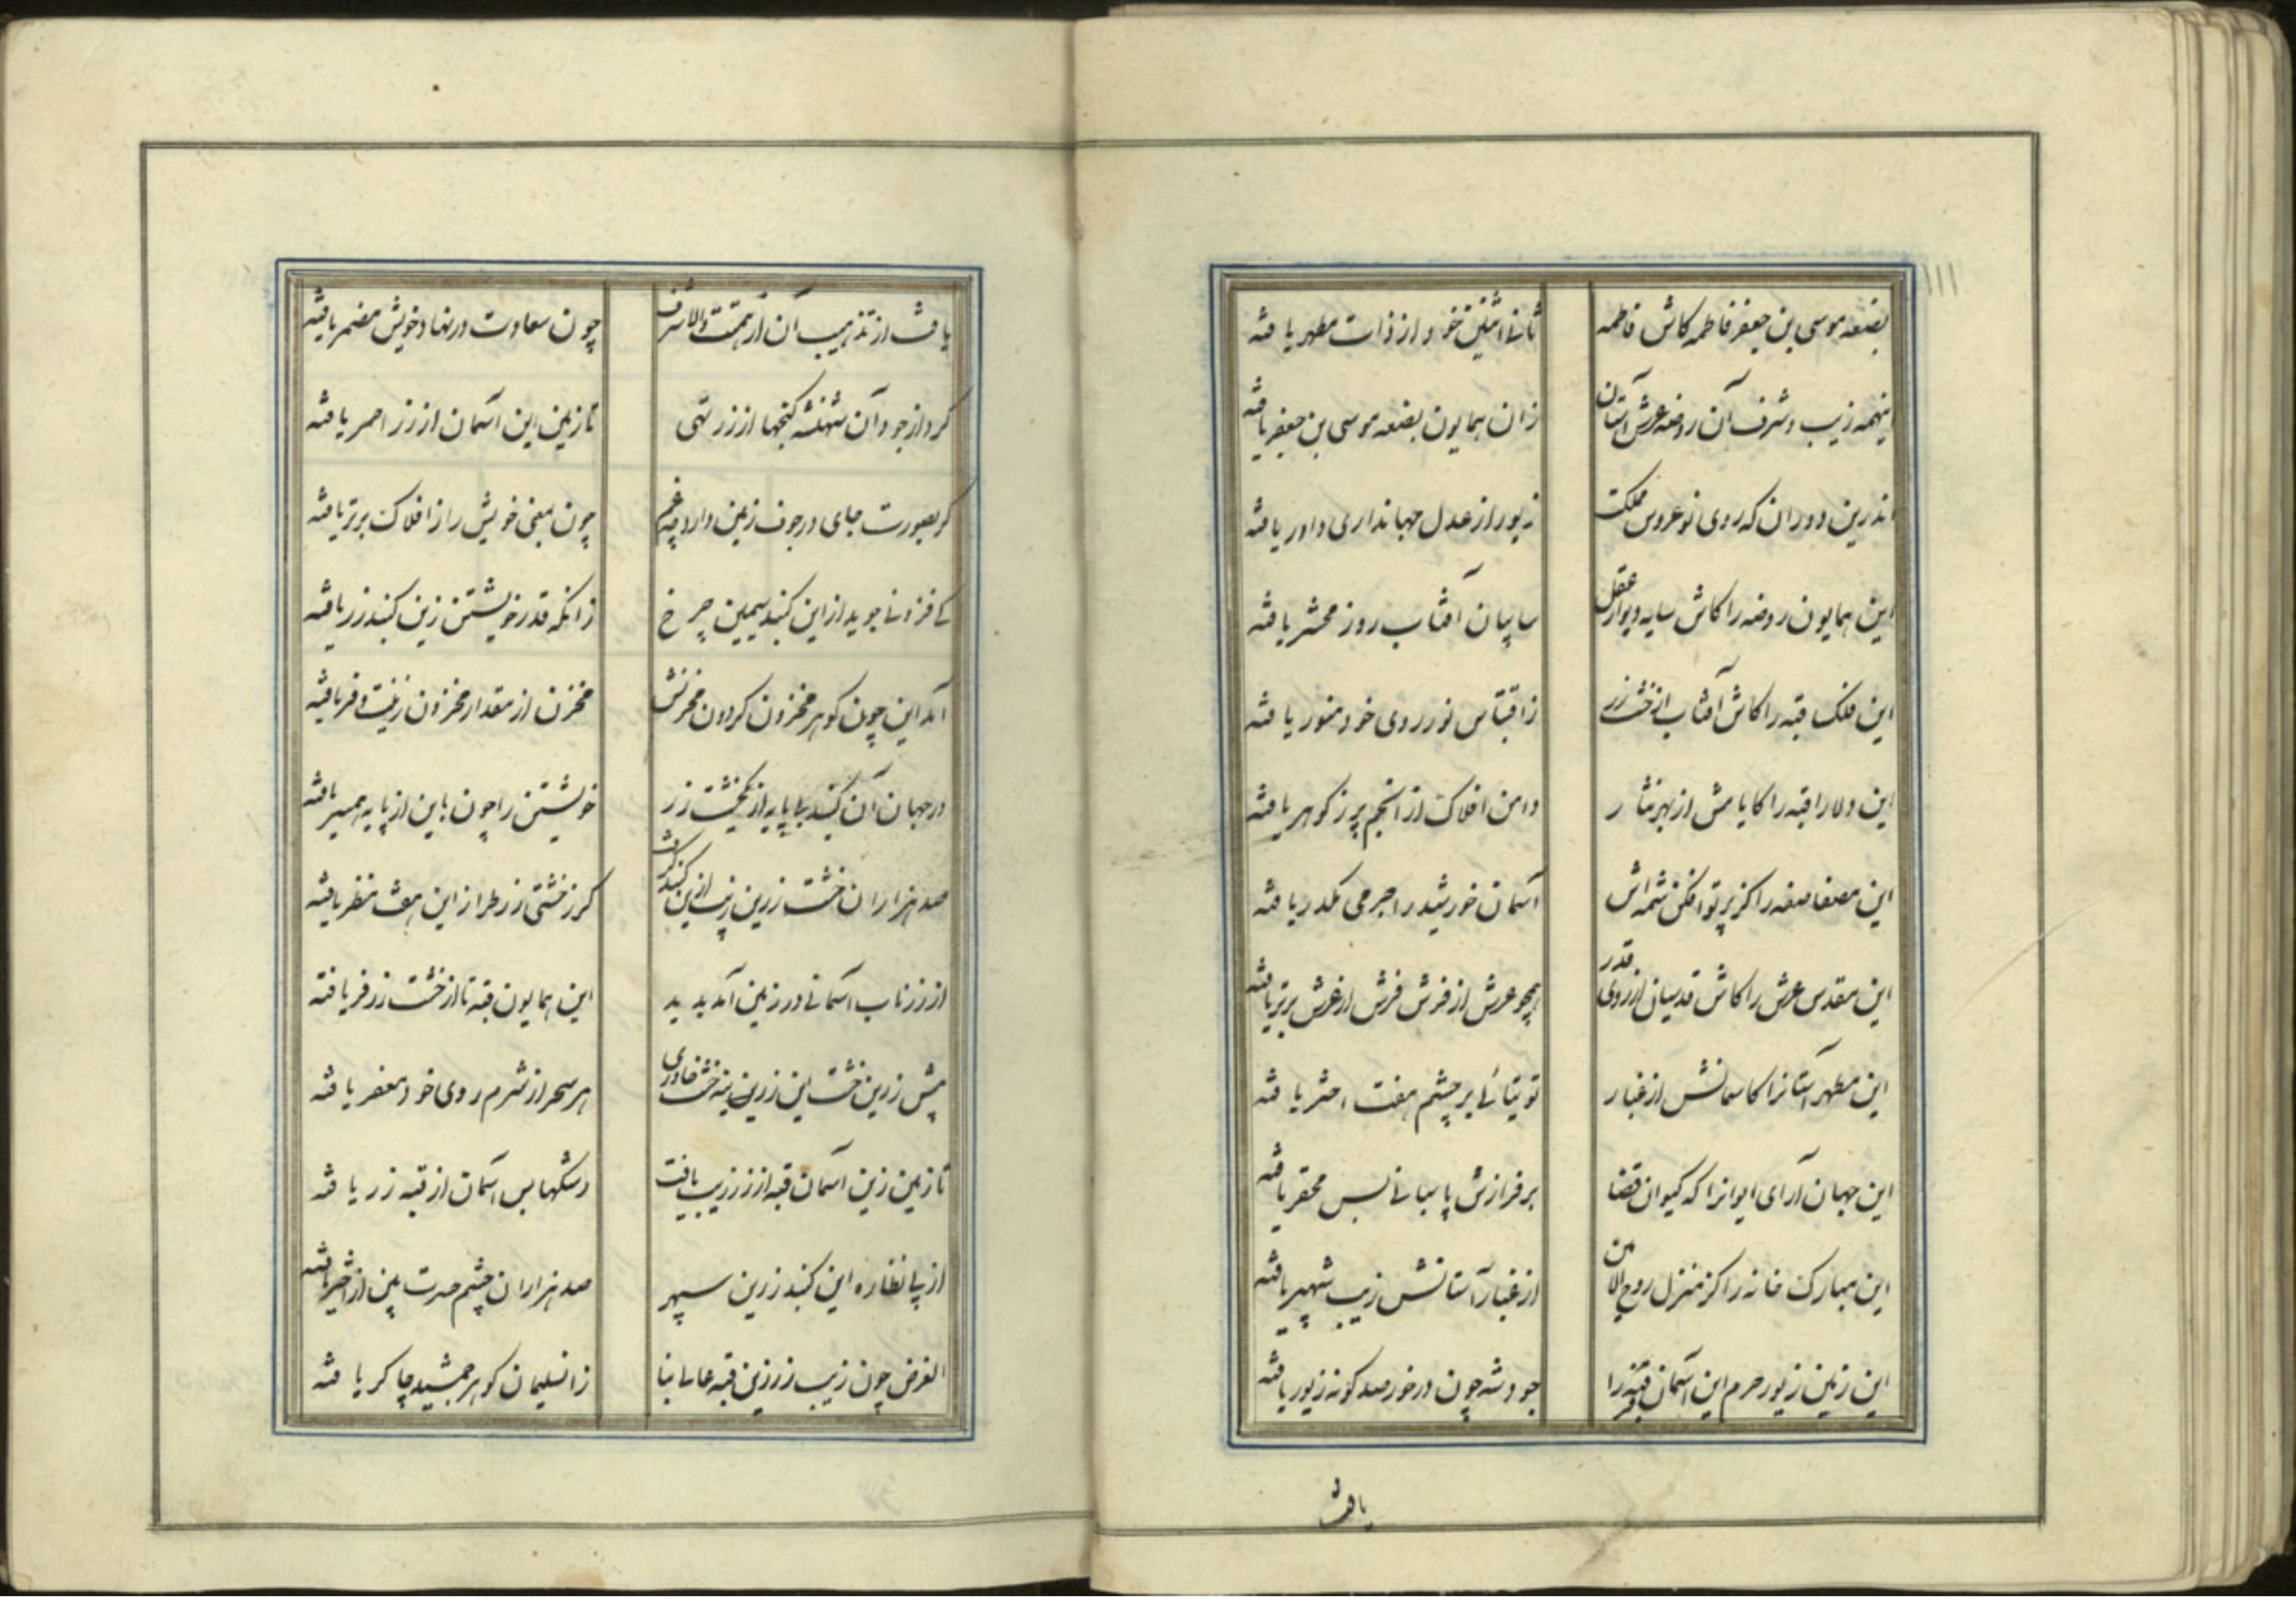 بضعه موسی بن جعفر فاطمه کاش فاطمه ثانی اثنین خود از ذات مطهر یافته
اینهمه زیب و شرف آن روضه عرش آستان زان همایون بضعه موسی بن جعفر یافته
اندرین دوران که روی نوعروس مملکت زیور از عدل جهانداری داور یافته
این همایون روضه را کاش سایه دیوار عقل سایبان آفتاب روز محشر یافته
این فلک قبه را کاش آفتاب از خشت زر ز اقتباس نور روی خود منور یافته
این ولارا قبه را کایامش از بهر نثار دامن افلاک از انجم پر ز کوهر یافته
این مصفا صفه را کز پرتو افکن شمه اش آسمان خورشید را جرمی مکدر یافته
این مقدس عرش را کاش قدسیان از روی قدر همچو عرش از فرش فرش از عرش برتر یافته
این مطهر آستانرا کاسمانش از غبار توتیائی بر چشم هفت اختر یافته
این جهان آرای ایوانرا که کیوان قضا بر فرازش پاسبانی بس محقر یافته
این مبارک خانه را کز منزل روح الامین از غبار آستانش زیب شهپر یافته
این زمین زیور حرم این آسمان قبه را جود شه چون در خور صد کونه زیور یافته
یافت
یافت از تذهیب آن از همت والا شرف چون سعادت در نهاد خویش مضمر یافته
کرد از جود آن شهنشه کنجها از زر تهی تا زمین این آسمان از زر احمر یافته
کر بصورت جای در جوف زمین دارد چه غم چون بمعنی خویش را ز افلاک برتر یافته
کی فزونی جوید از این کنبد سیمین چرخ زانکه قدر خویشتن زین کنبد زر یافته
آمد این چون کوهر مخزون کردون مخزنش مخزن از مقدار مخزون زینت و فر یافته
در جهان آن کنبد بی پایه از یکخشت زر خویشتن را چون باین از پایه همسر یافته
صد هزاران خشت زرین زیب از این کنبد کرفت کر ز خشتی زر طراز این هفت منظر یافته
از زر ناب آسمانی در زمین آمد پدید این همایون قبه تا از خشت زر فر یافته
پیش زرین خشت این زرین بنه خشت خاوری هر سحر از شرم روی خود معصفر یافته
تا زمین زین آسمان قبه از زر زیب یافت رشکها بس آسمان از قبه زر یافته
از پی نظاره این کنبد زرین سپهر صد هزاران چشم حسرت بین از اختر یافته
الغرض چون زیب زر زین قبه عالی بنا زان سلیمان کوهر جمشید چاکر یافته